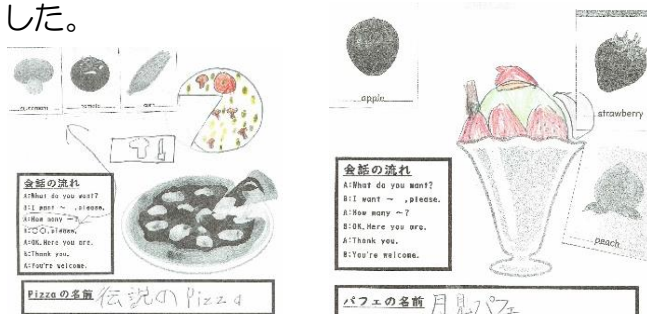 した。
tomato
corn
会話の流れ
A:What do you want?
B:I want ～ ,please.
A:How many ～?
B:〇〇,please.
A:OK. Here you are.
B:Thank you.
A:You're welcome.
Pizzaの名前 伝説のPizza
apple
strawberry
peach
会話の流れ
A:What do you want?
B:I want ～ ,please.
A:How many ～?
B:OK. Here you are.
A:Thank you.
B:You're welcome.
パフェの名前 月見パフェ